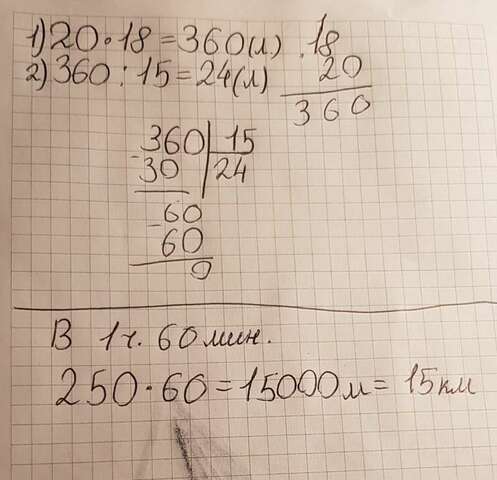 1) 20 · 18 = 360 (л)
2) 360 : 15 = 24 (л)
· 18
20
360
360 | 15
- 30 | 24
- 60
60
0
В 1 ч. 60 мин.
250 · 60 = 15000 м = 15 км